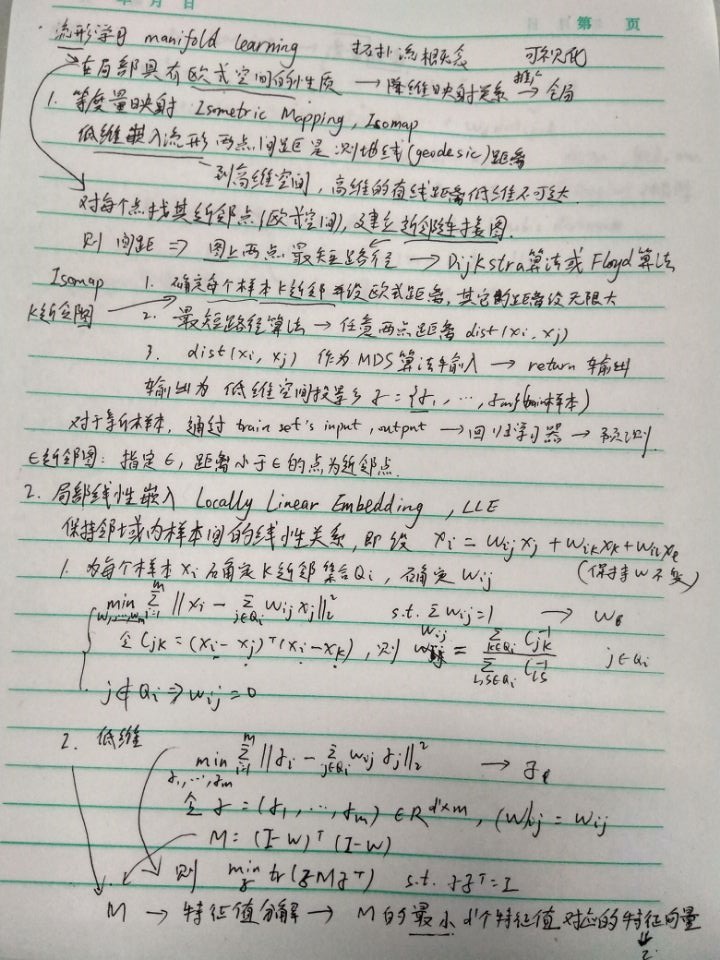 年 月 日 第 页
流形学习 manifold learning 拓扑流形概念 可视化
在局部具有欧式空间的性质 → 降维映射关系 推广→ 全局
1. 等度量映射 Isometric Mapping, Isomap
低维嵌入流形两点间距是测地线(geodesic)距离
到高维空间, 高维的直线距离低维不可达.
对每个点找其近邻点(欧式空间), 建立近邻连接图.
则 间距 ⇒ 图上两点最短路径 → Dijkstra算法或Floyd算法
Isomap 1. 确定每个样本K近邻并设欧式距离, 其它的距离设无限大
K近邻图 2. 最短路径算法 → 任意两点距离 dist(xi, xj)
3. dist(xi, xj) 作为MDS算法输入 → return 输出
输出为 低维空间投影 z = {z1, ..., zm}(train样本)
对于新样本, 通过 train set's input, output → 回归学习器 → 预测.
ϵ近邻图: 指定ϵ, 距离小于ϵ的点为近邻点.
2. 局部线性嵌入 Locally Linear Embedding, LLE
保持邻域内样本间的线性关系, 即设 xi = wij xj + wik xk + wil xl
(保持w不变)
1. 为每个样本 xi 确定K近邻集合Qi, 确定wij
min w1,...,wm Σ i=1 m ||xi − Σ j∈Qi wij xj||₂² s.t. Σwij=1 → w
令 Cjk = (xi − xj)ᵀ(xi − xk), 则 wij = Σ k∈Qi Cjk⁻¹ / Σ l,s∈Qi Cls⁻¹ j∈Qi
j∉Qi ⇒ wij = 0
2. 低维
min z1,...,zm Σ i=1 m ||zi − Σ j∈Qi wij zj||₂² → z
令 z = (z1, ..., zm) ∈ R d'×m, (W)ij = wij
M = (I−W)ᵀ(I−W)
则 min z tr(zMzᵀ) s.t. zzᵀ=I
M → 特征值分解 → M的最小d'个特征值对应的特征向量
⇓
z